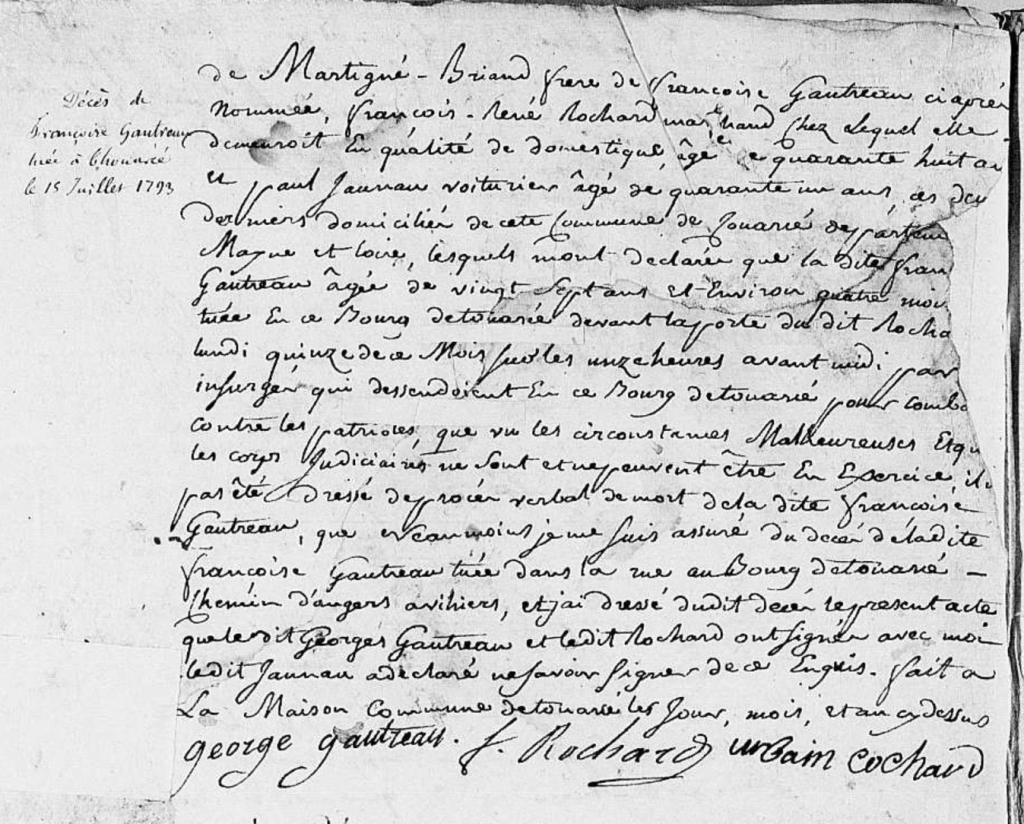 Décès de
Françoise Gautreau
tuée à thouarcé
le 15 Juillet 1793
de Martigné - Briand frere de françoise Gautreau ci après
Nommée, françois - René Rochard marchand chez Lequel elle
demeuroit En qualité de domestique, âgé de quarante huit an
et paul Jaunau voiturier âgé de quarante un ans, ces deu
derniers domiciliés de cete Commune de Touarcé departem
Mayne et Loire, lesquels m'ont declarée que la dite fran
Gautreau âgée de vingt Sept ans Et Environ quatre moi
tuée En ce Bourg de touarcé devant la porte du dit Rocha
lundi quinze de ce Mois sur les unze heures avant midi par
insurgés qui dessendoient En ce Bourg de touarcé pour comba
contre les patriotes, que vu les circonstames Malheureuses Et qu
les corps Judiciaires ne Sont et ne peuvent être En Exercice il
pas été dressé de procés verbal de mort de la dite francoise
Gautreau, que neanmoins je me suis assuré du decés de ladite
françoise Gautreau tuée dans la rue au Bourg de touarcé -
Chemin d'angers a vihiers, et jai dressé dudit decés le present acte
que le dit Georges Gautreau et ledit Rochard ont signés avec moi
ledit Jaunau a declaré ne savoir signer de ce Enquis. fait a
La Maison Commune de touarcé les Jour, mois, et an cy dessus
george gautreau. f. Rochard urbain cochard